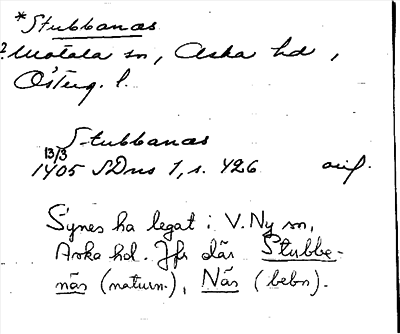 *Stubbanæs
? Motala sn, Aska hd,
Österg. l.
Stubbanæs
13/3
1405 SDns 1, s. 426 avf.
Synes ha legat i V. Ny sn,
Aska hd. Jfr där Stubbe-
näs (naturn.), Näs (bebn).